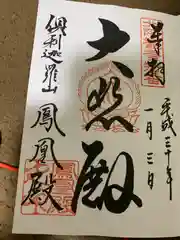 奉拝
平成三十年
一月三日
大悲殿
倶利迦羅山
鳳凰殿